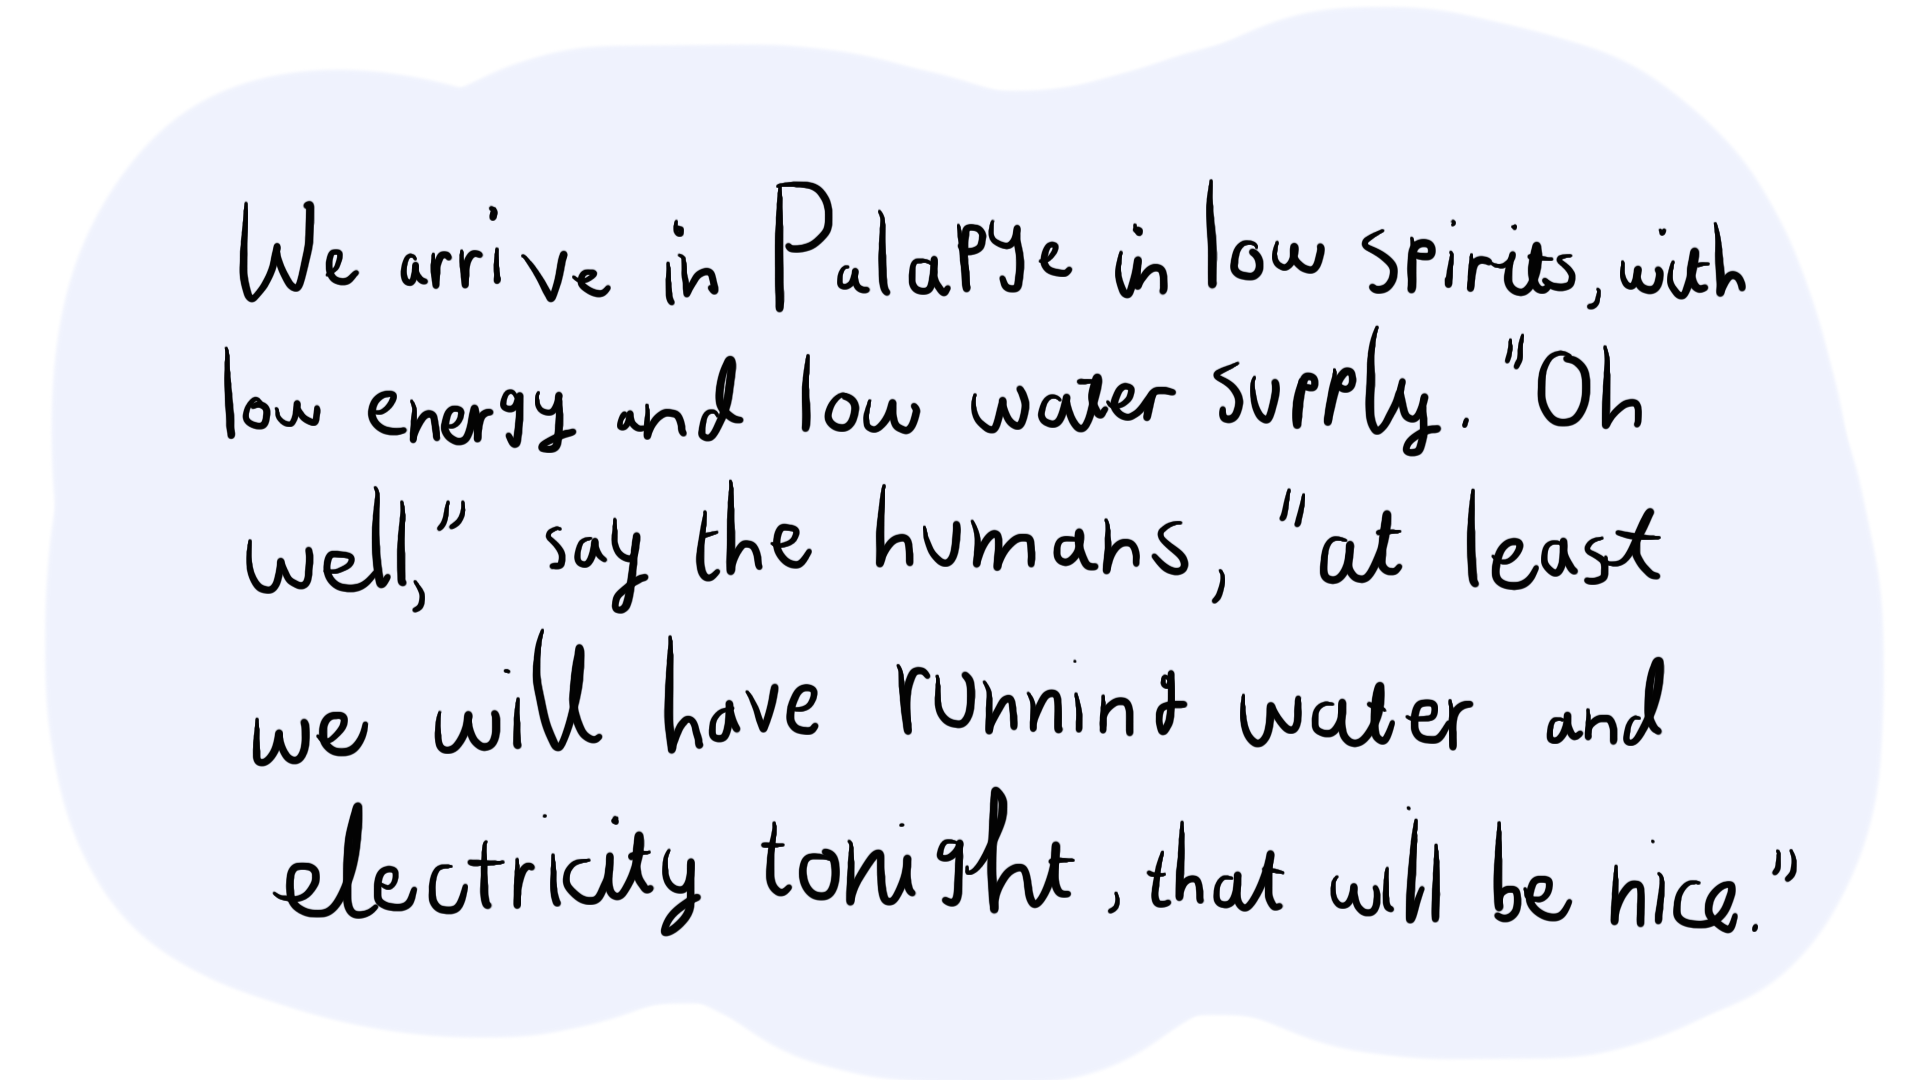 We arrive in Palapye in low spirits, with
low energy and low water supply. "Oh
well," say the humans, "at least
we will have running water and
electricity tonight, that will be nice."